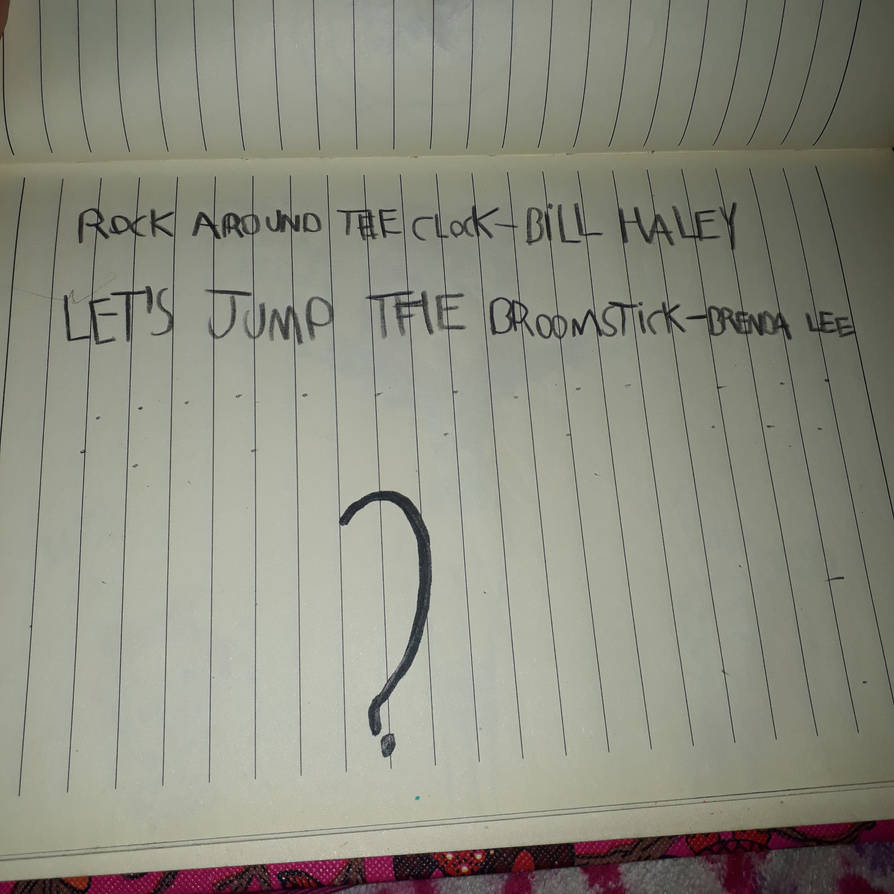 ROCK AROUND THE CLOCK-BILL HALEY
LET'S JUMP THE BROOMSTICK-BRENDA LEE
?